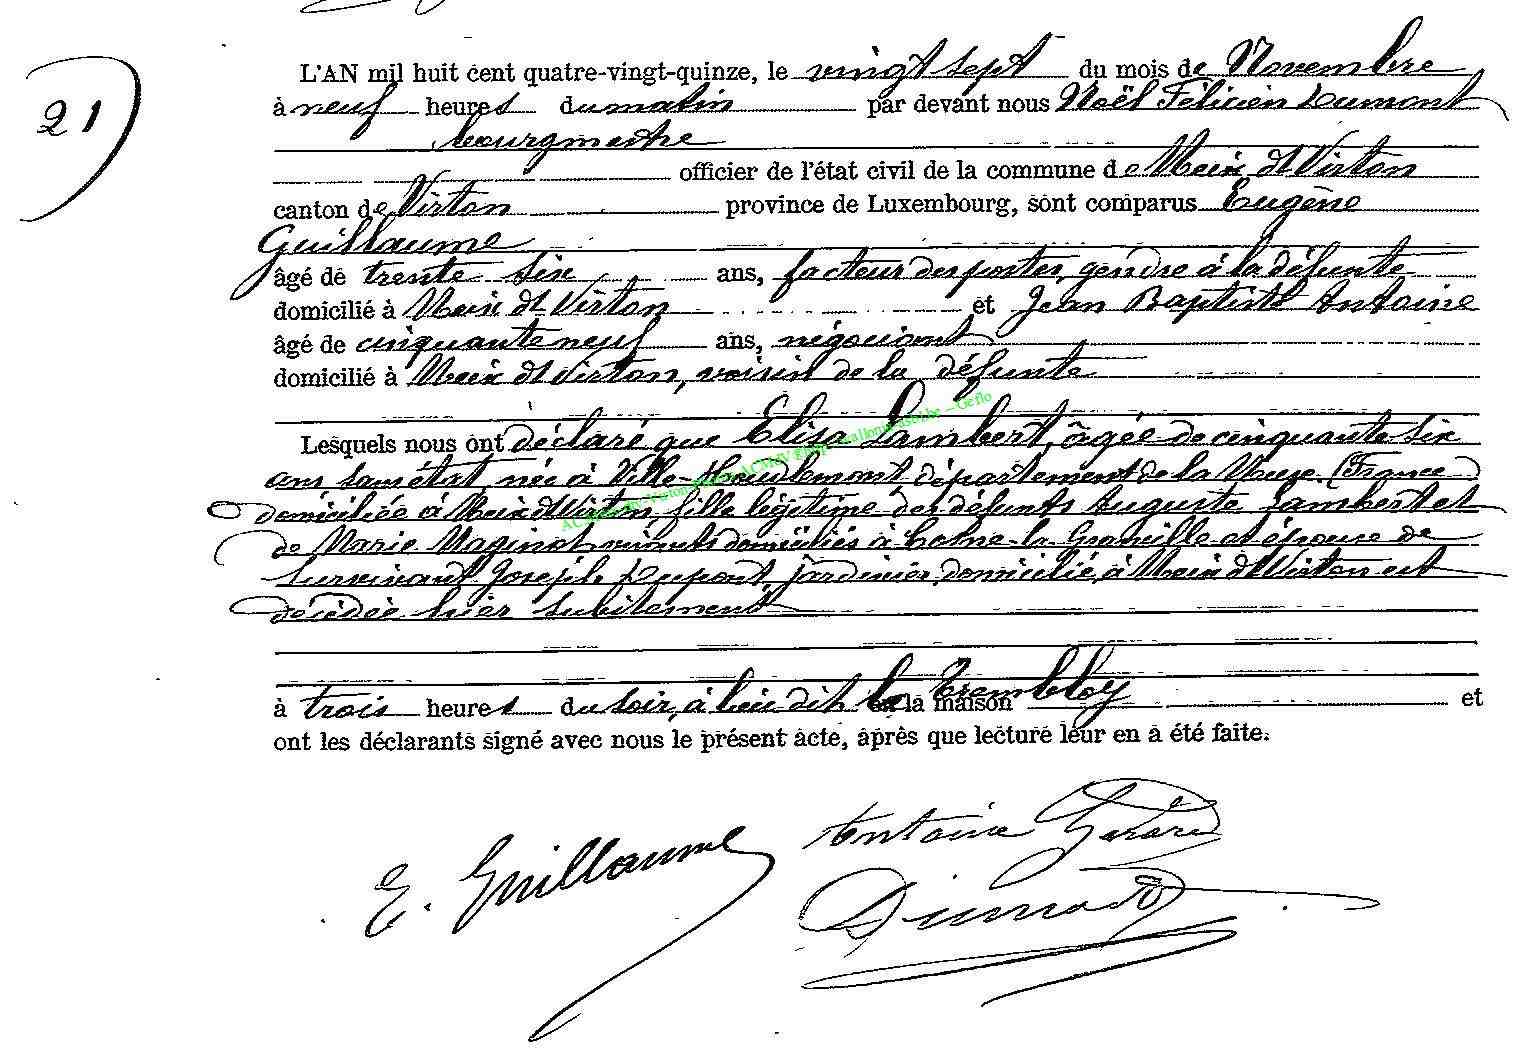 21)
L'AN mil huit cent quatre-vingt-quinze, le vingt sept du mois de Novembre
à neuf heures du matin par devant nous Noël Félicien Dumont
bourgmestre
officier de l'état civil de la commune de Meix dt Virton
canton de Virton province de Luxembourg, sont comparus Eugène
Guillaume
âgé de trente six ans, facteur des postes, gendre à la défunte
domicilié à Meix dt Virton et Jean Baptiste Antoine
âgé de cinquante neuf ans, négociant
domicilié à Meix dt Virton, voisin de la défunte
Lesquels nous ont déclaré que Elisa Lambert, âgée de cinquante six
ans sans état, née à Ville-Houdlemont département de la Meuse (France)
domiciliée à Meix dt Virton, fille légitime des défunts Auguste Lambert et
de Marie Maginot vivants domiciliés à Cosne-la-Granville et épouse de
survivant Joseph Dupont, jardinier, domicilié à Meix dt Virton est
décédée hier subitement
à trois heures du soir, à lieu dit le Trembloy en la maison et
ont les déclarants signé avec nous le présent acte, après que lecture leur en a été faite.
E. Guillaume
Antoine Gérard
Dumont